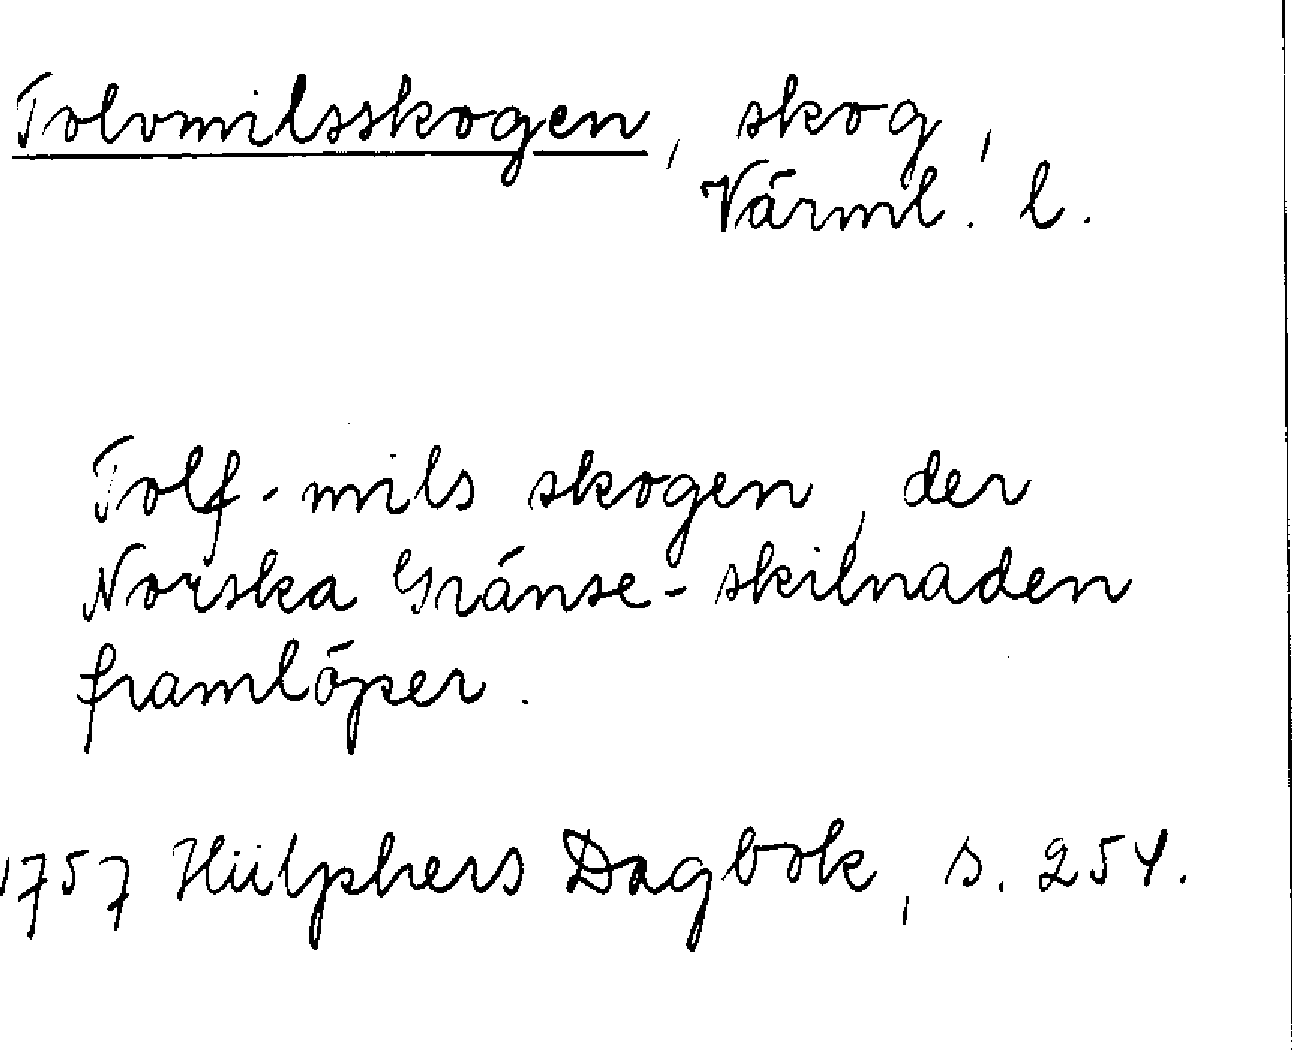 Tolvmilsskogen, skog,
Värml. l.
Tolf-mils skogen, der
Norska Gränse-skilnaden
framlöper.
1757 Hülphers Dagbok, s. 254.